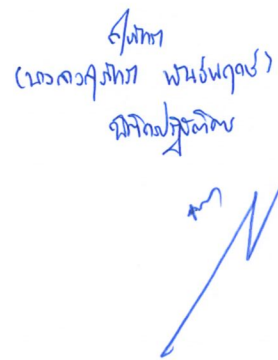 สุภัทรา
(นางสาวสุภัทรา พันธ์พฤกษ์)
นิติกรปฏิบัติการ